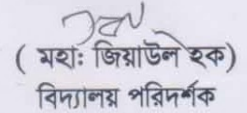 ( মহাঃ জিয়াউল হক)
বিদ্যালয় পরিদর্শক